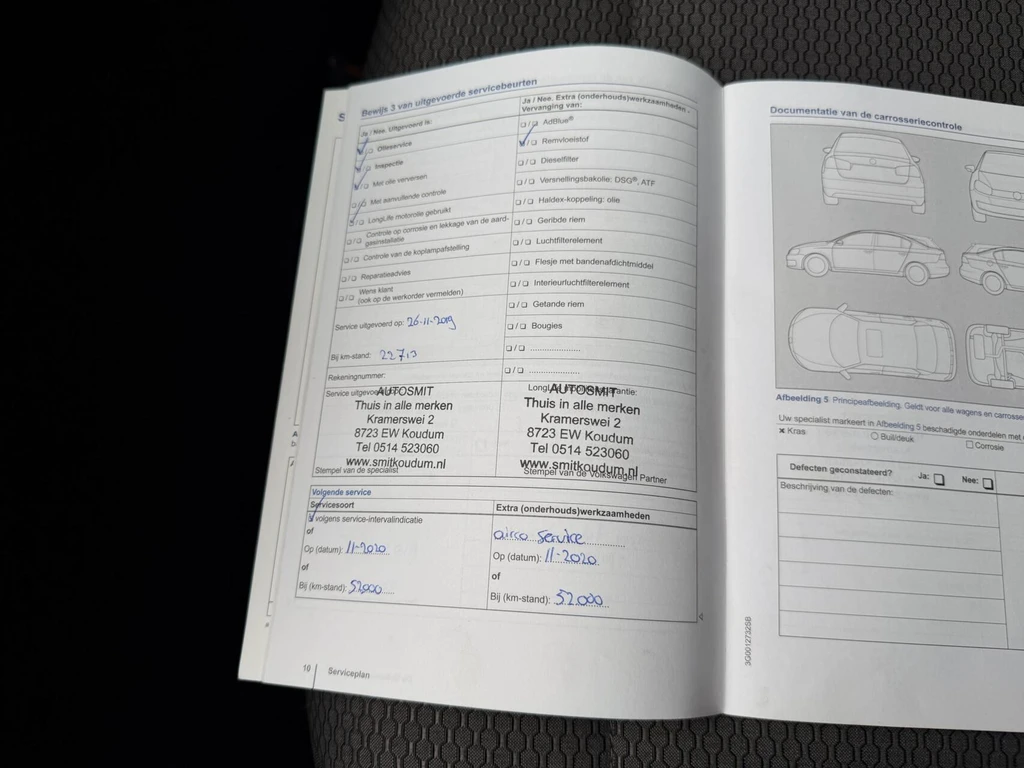 Bewijs 3 van uitgevoerde servicebeurten
Ja / Nee. Uitgevoerd is:
Olieservice
Inspectie
Met olie verversen
Met aanvullende controle
LongLife motorolie gebruikt
Controle op corrosie en lekkage van de aard-
gasinstallatie
Controle van de koplampafstelling
Reparatieadvies
Wens klant
(ook op de werkorder vermelden)
Service uitgevoerd op: 26-11-2019
Bij km-stand: 22713
Rekeningnummer:
Service uitgevoerd
AUTOSMIT
Thuis in alle merken
Kramerswei 2
8723 EW Koudum
Tel 0514 523060
www.smitkoudum.nl
Stempel van de specialist
Ja / Nee. Extra (onderhouds)werkzaamheden -
Vervanging van:
AdBlue®
Remvloeistof
Dieselfilter
Versnellingsbakolie: DSG®, ATF
Haldex-koppeling: olie
Geribde riem
Luchtfilterelement
Flesje met bandenafdichtmiddel
Interieurluchtfilterelement
Getande riem
Bougies
AUTOSMIT
Thuis in alle merken
Kramerswei 2
8723 EW Koudum
Tel 0514 523060
www.smitkoudum.nl
Stempel van de Volkswagen Partner
Volgende service
Servicesoort
volgens service-intervalindicatie
of
Op (datum): 11-2020
of
Bij (km-stand): 52000
Extra (onderhouds)werkzaamheden
airco service
Op (datum): 11-2020
of
Bij (km-stand): 52000
10 Serviceplan
Documentatie van de carrosseriecontrole
Afbeelding 5 Principeafbeelding. Geldt voor alle wagens en
Uw specialist markeert in Afbeelding 5 beschadigde onderdelen met
× Kras
Buil/deuk
Corrosie
Defecten geconstateerd? Ja: Nee:
Beschrijving van de defecten:
3G0012732SB